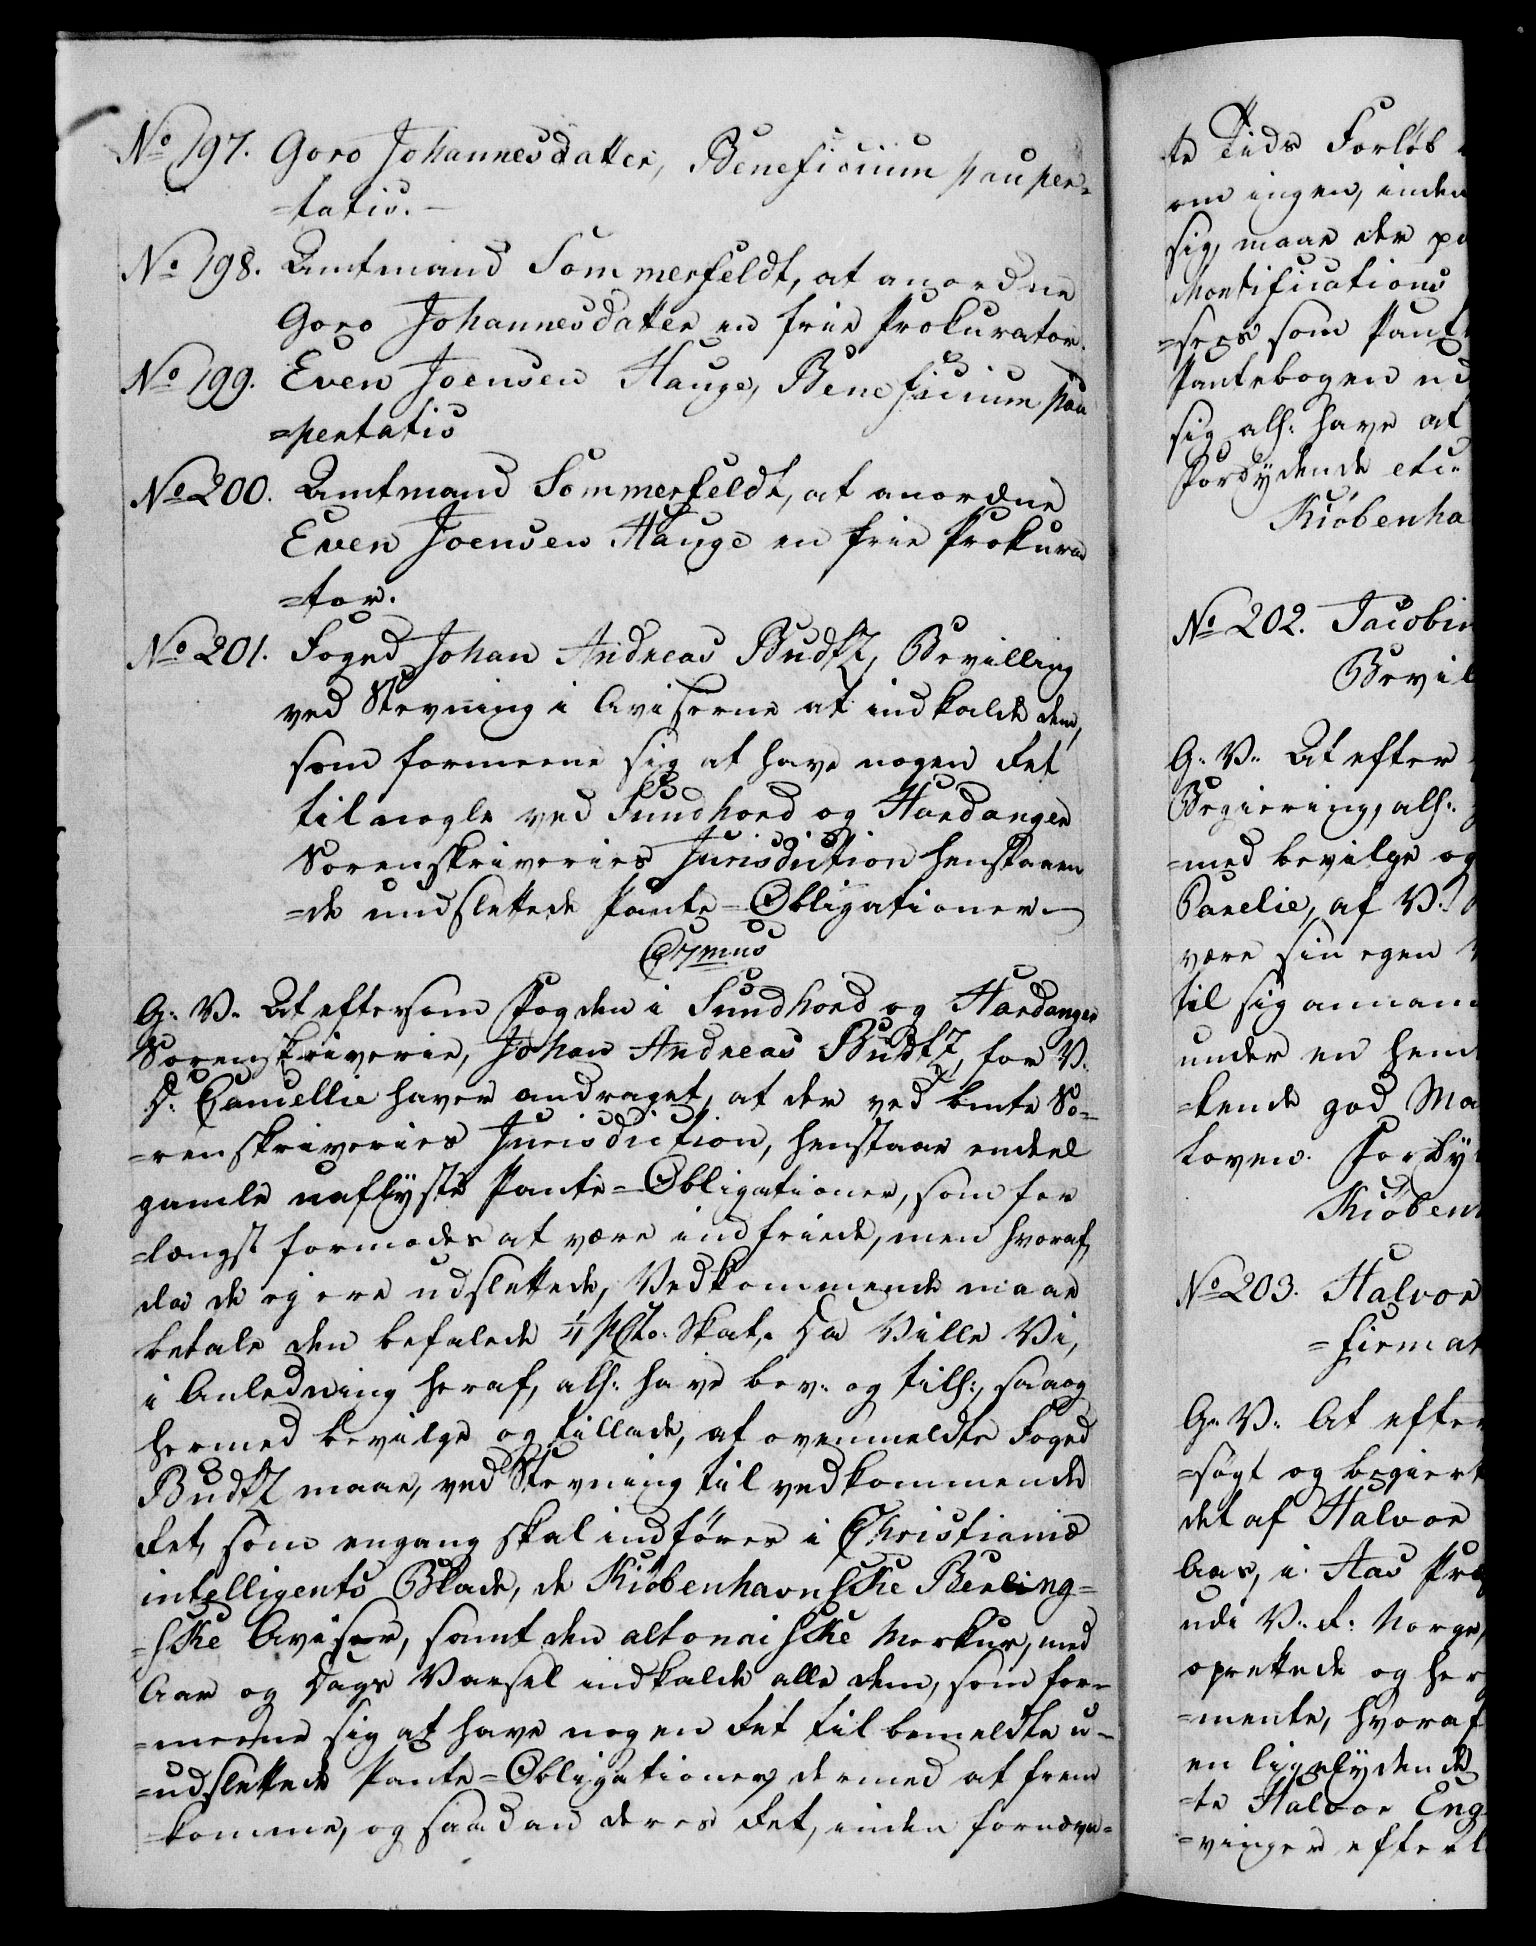 No 197. Goro Johannesdatter, Beneficium pauper-
=tatis.
No 198. Amtmand Sommerfeldt, at anordne
Goro Johannesdatter en frie Prokurator.
No 199. Even Joensen Hauge, Beneficium pau
=pertatis
No 200. Amtmand Sommerfeldt, at anordne
Even Joensen Hauge en frie Prokura
=tor.
No 201. Foged Johan Andreas Budtz, Bevilling
ved Stevning i Aviserne at indkalde dem,
som formeene sig at have nogen Ret
til nogle ved Sundhord og Hardanger
Sorenskriveries Jurisdiction henstaaen
=de uudslettede Pante=Obligationer.
G. V. At eftersom Fogden i Sundhord og Hardanger
Sorenskriverie, Johan Andreas Budtz, for V.
D. Cancellie haver andraget, at der ved bmte So-
=renskriveries Jurisdiction, henstaar endeel
gamle uaflyste Pante=Obligationer, som for
=længst formodes at være indfriede, men hvoraf,
da de ej ere udslettede, Vedkommende maae
betale den befalede 1/4 PCto. Skat. Da Ville Vi,
i Anledning heraf, alh: have bev: og tilh:, saa og
hermed bevilge og tillade, at ovenmeldte Foged
Budtz maae, ved Stevning til vedkommende
Ret, som engang skal indføres i Christiania
intelligents Blade, de Kiøbenhavnske Berling=
=ske Aviser, samt den altonaiske Merkur, med
Aar og Dags Varsel indkalde alle dem, som for=
=meene sig at have nogen Ret til bemeldte u=
=udslettede Pante=Obligationer, dermed at frem
=komme, og saadan deres Ret, inden fornævn=
te Tids Forløb
om ingen, inden
sig, maae der pa
Mortifications
=sees som Pant
Pantebogen ud
sig alh: have at
Forbydende etc.
Kiøbenha
No 202. Jacobin
Bevil
G. V. At efter
Begiering, alh:
=med bevilge og
, af V.
være sin egen
til sig annam
under en
=kende god Ma
Loven. Forby
Kiøben
No 203. Halvor
=firmat
G. V. At efter
=søgt og begiert
det af Halvor
Aas, i Aas Præ
udi V. R. Norge,
oprettede og her
=mente, hvoraf
en ligelydende
=te Halvor Eng
=vinger efterl